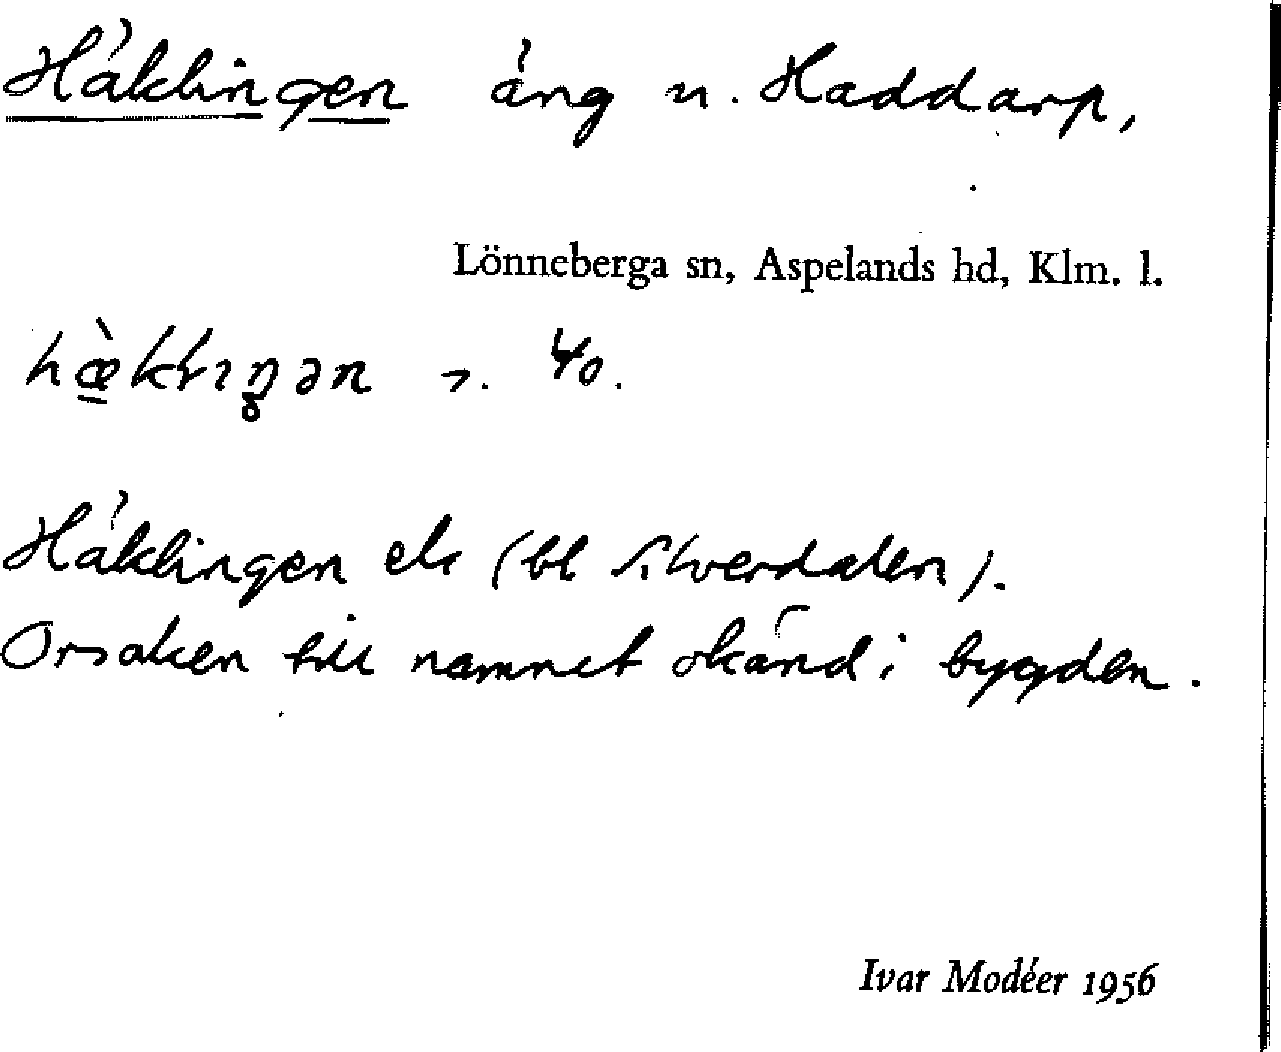 Häklingen äng n. Haddarp,
Lönneberga sn, Aspelands hd, Klm. l.
hæ̀klıŋən
Häklingen ek (bl Silverdalen).
Orsaken till namnet okänd i bygden.
Ivar Modéer 1956